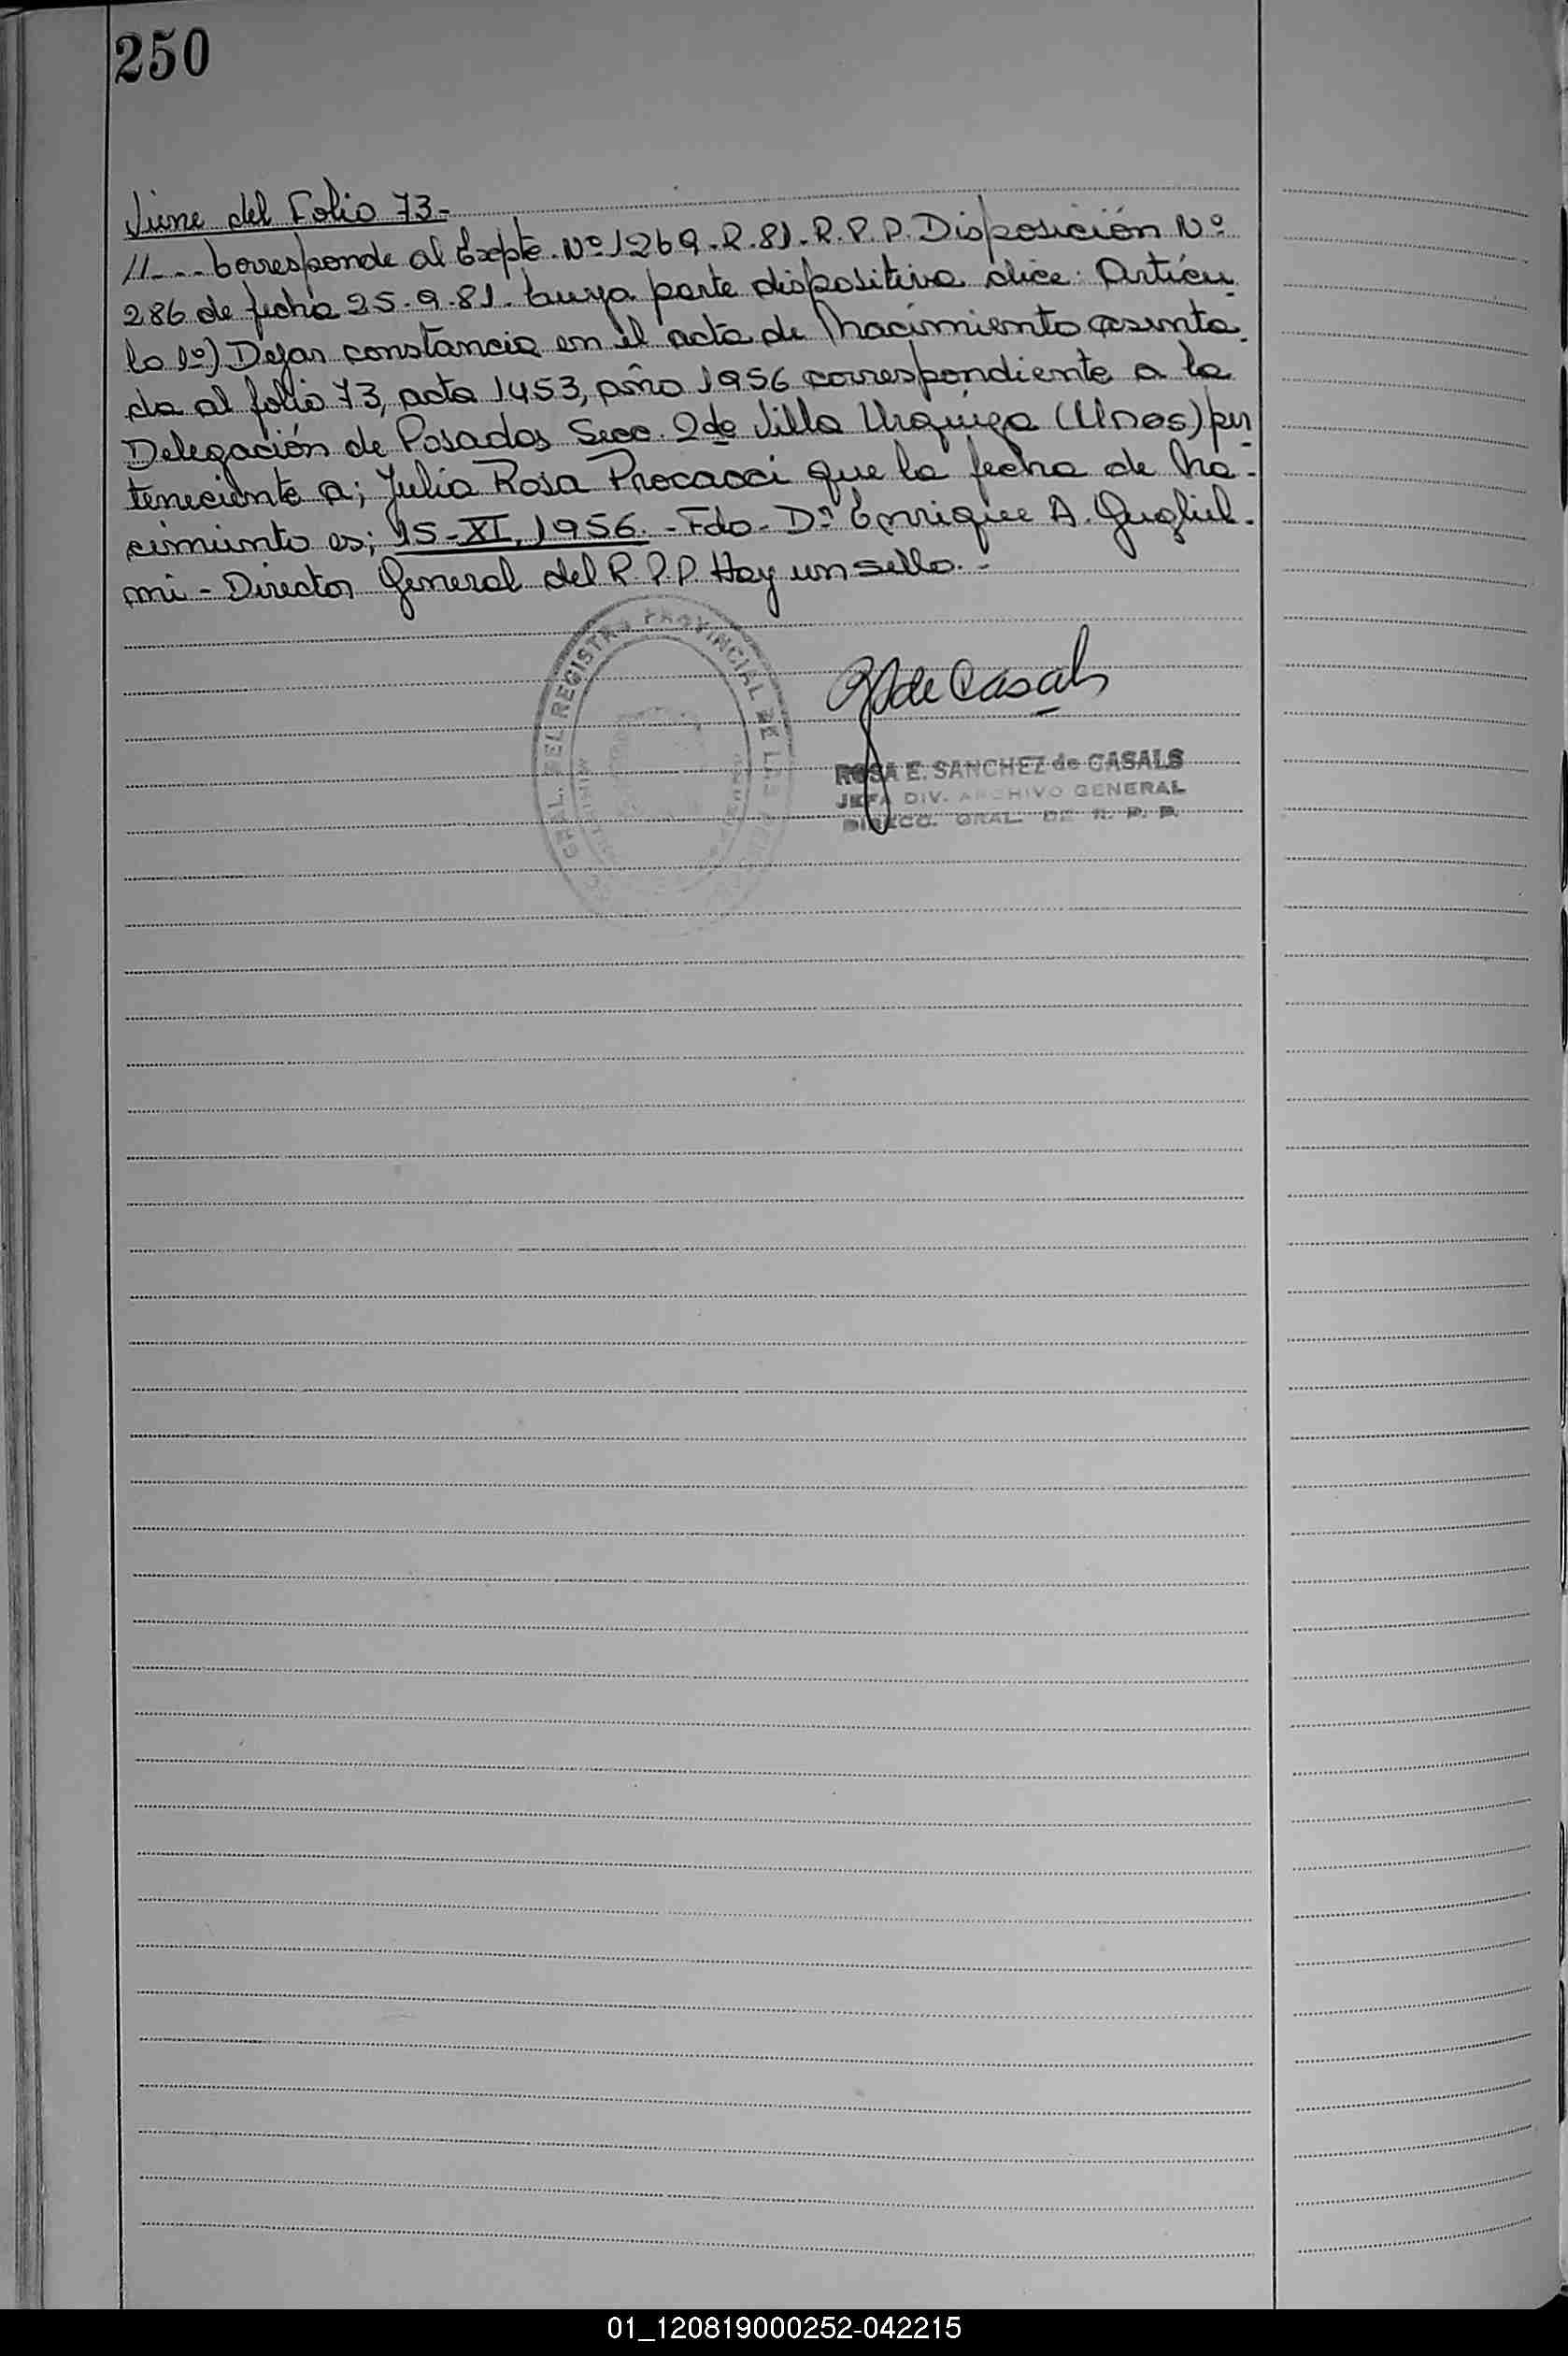 250
Viene del Folio 73-
//--- Corresponde al Expte. Nº 1269-R-81-R.P.P. Disposición Nº
286 de fecha 25-9-81- cuya parte dispositiva dice: Artícu
lo 1º) Dejar constancia en el acta de Nacimiento asenta-
da al folio 73, acta 1453, año 1956 correspondiente a la
Delegación de Posadas Secc. 2da Villa Urquiza (Mnes) per
teneciente a; Julia Rosa Procacci que la fecha de Na-
cimiento es; 15-XI, 1956.-Fdo- Dº Enrique A. Gugliel-
mi - Director General del R.P.P. Hay un sello.-
GRAL. DEL REGISTRO PROVINCIAL DE LAS
R de Casals
ROSA E. SANCHEZ de CASALS
JEFA DIV. ARCHIVO GENERAL
DIRECC. GRAL. DE R. P. P.
01_120819000252-042215